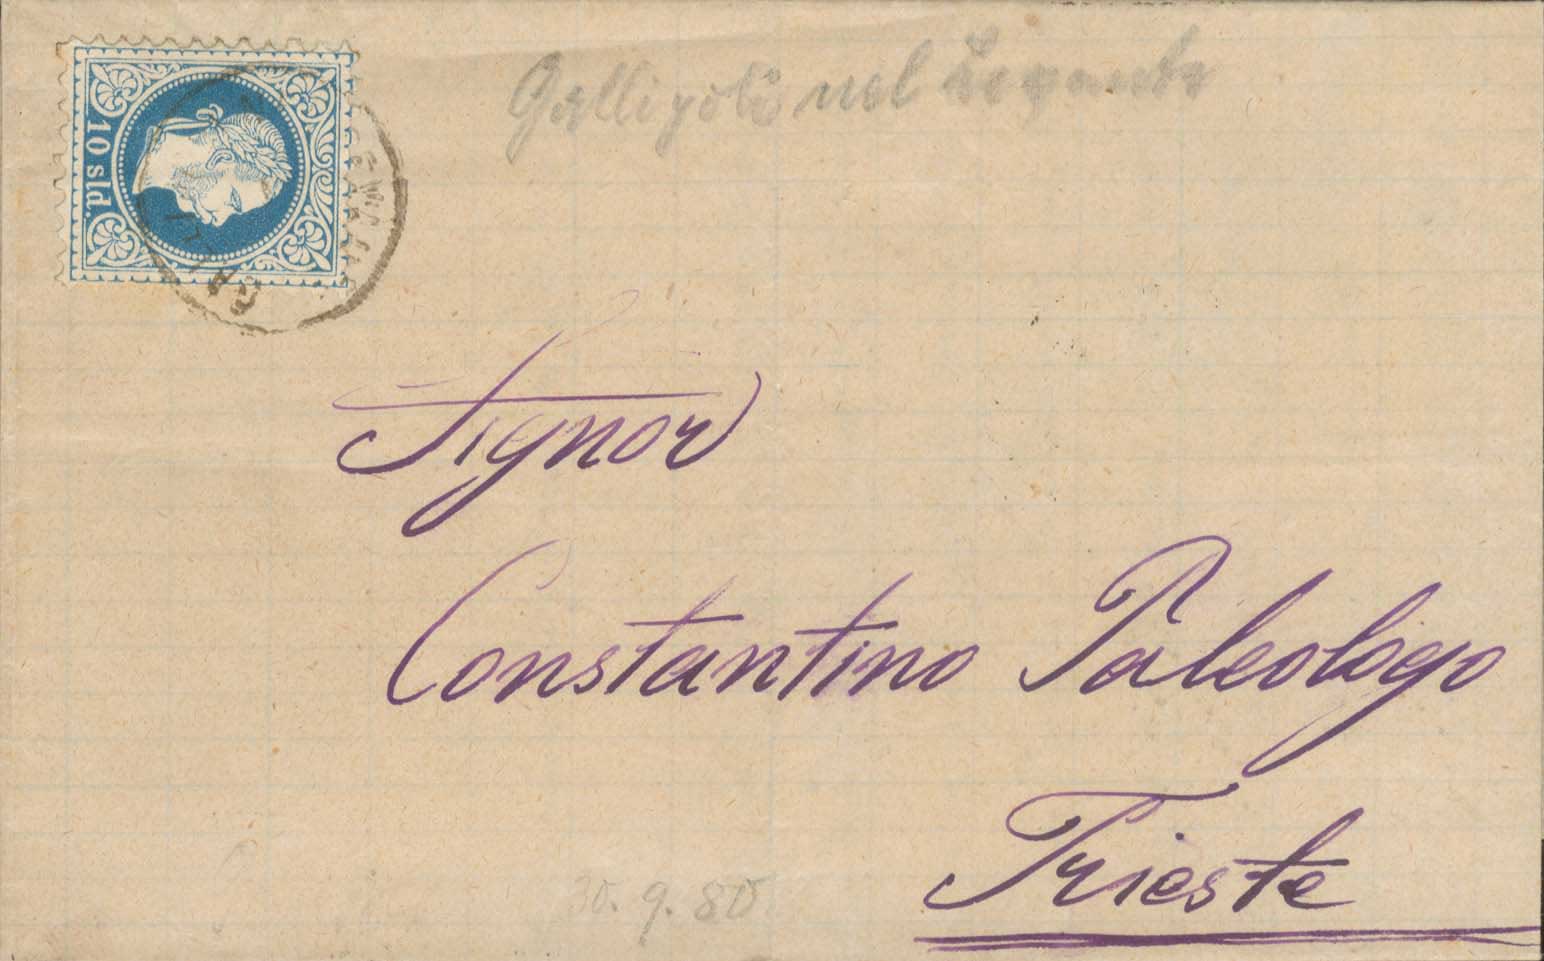 Gallipoli nel
10 sld.
Signor
Constantino Paleologo
Trieste
30. 9. 80